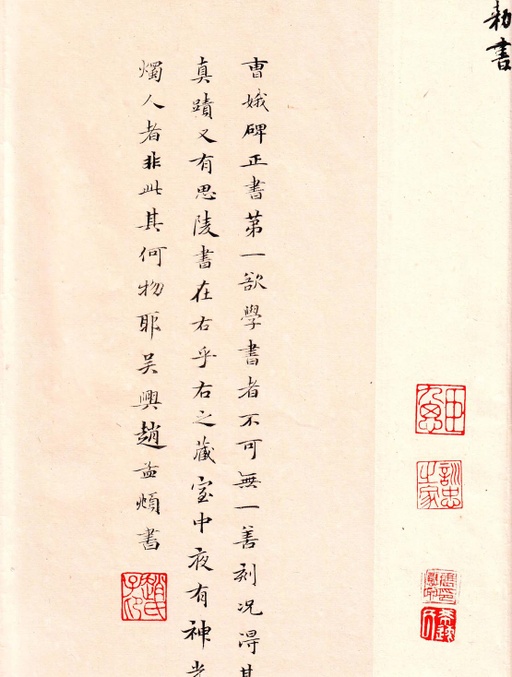 勑書
曺娥碑正書第一欲學書者不可無一善刻况得其
真蹟又有思陵書在右乎右之藏室中夜有神光
燭人者非此其何物耶吴興趙孟頫書
趙氏子昂
訓忠之家